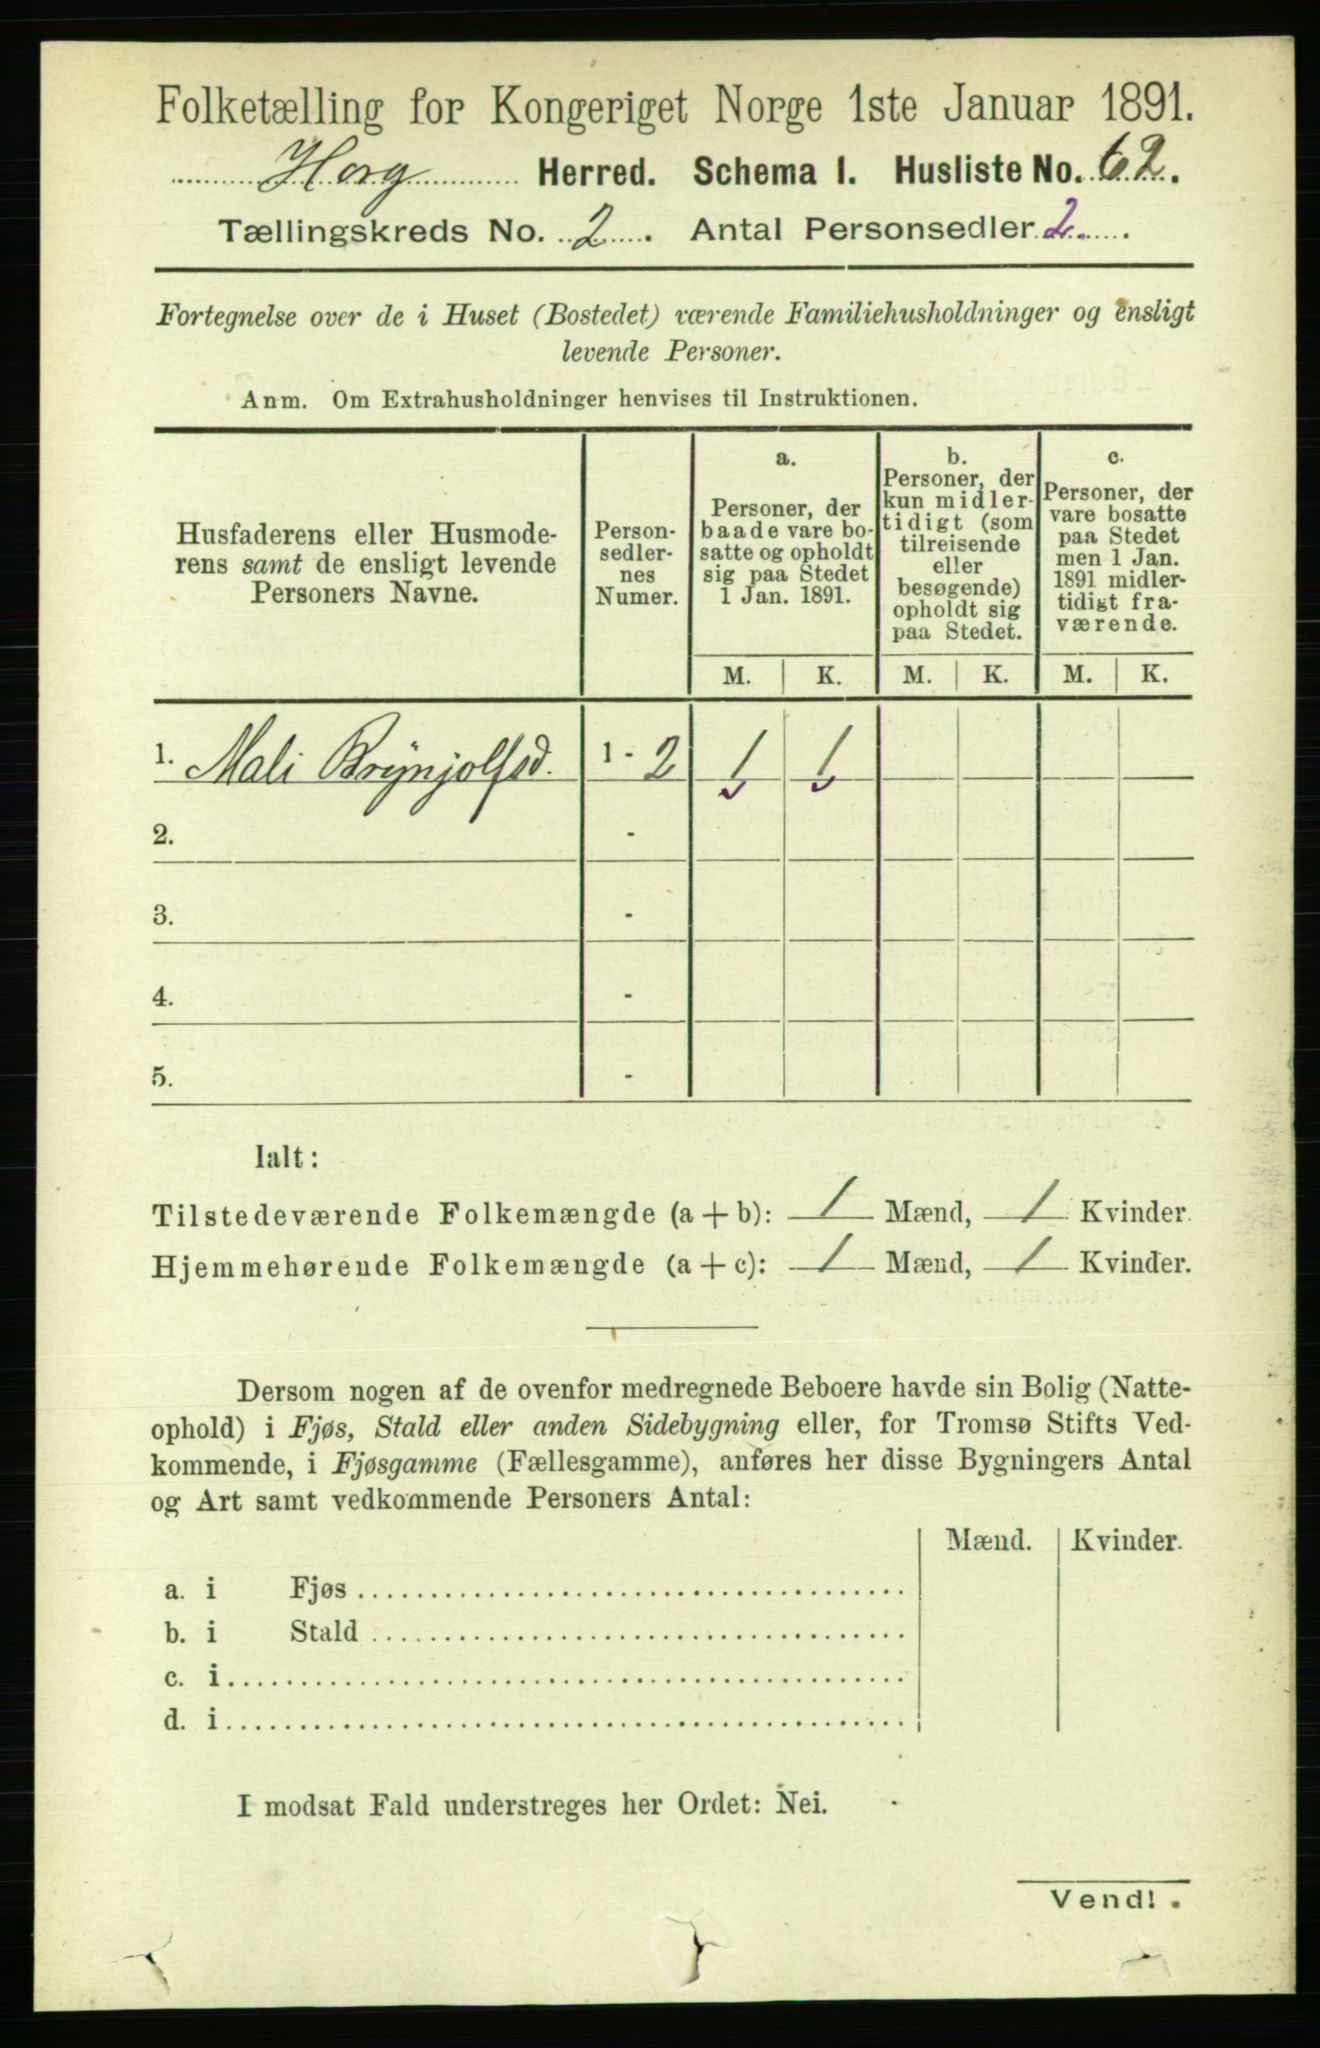 Folketælling for Kongeriget Norge 1ste Januar 1891.
Horg Herred. Schema 1. Husliste No. 62.
Tællingskreds No. 2. Antal Personsedler 2.
Fortegnelse over de i Huset (Bostedet) værende Familiehusholdninger og ensligt
levende Personer.
Anm. Om Extrahusholdninger henvises til Instruktionen.
Husfaderens eller Husmode-
rens samt de ensligt levende
Personers Navne.
Person-
sedler-
nes
Numer.
a.
Personer, der
baade vare bo-
satte og opholdt
sig paa Stedet
1 Jan. 1891.
b.
Personer, der
kun midler-
tidigt (som
tilreisende
eller
besøgende)
opholdt sig
paa Stedet.
c.
Personer, der
vare bosatte
paa Stedet
men 1 Jan.
1891 midler-
tidigt fra-
værende.
M. K. M. K. M. K.
1. Mali Brynjolfsd. 1 - 2 1 1
2. -
3. -
4. -
5. -
Ialt:
Tilstedeværende Folkemængde (a + b): 1 Mænd, 1 Kvinder.
Hjemmehørende Folkemængde (a + c): 1 Mænd, 1 Kvinder.
Dersom nogen af de ovenfor medregnede Beboere havde sin Bolig (Natte-
ophold) i Fjøs, Stald eller anden Sidebygning eller, for Tromsø Stifts Ved-
kommende, i Fjøsgamme (Fællesgamme), anføres her disse Bygningers Antal
og Art samt vedkommende Personers Antal:
Mænd. Kvinder.
a. i Fjøs
b. i Stald
c. i
d. i
I modsat Fald understreges her Ordet: Nei.
Vend!